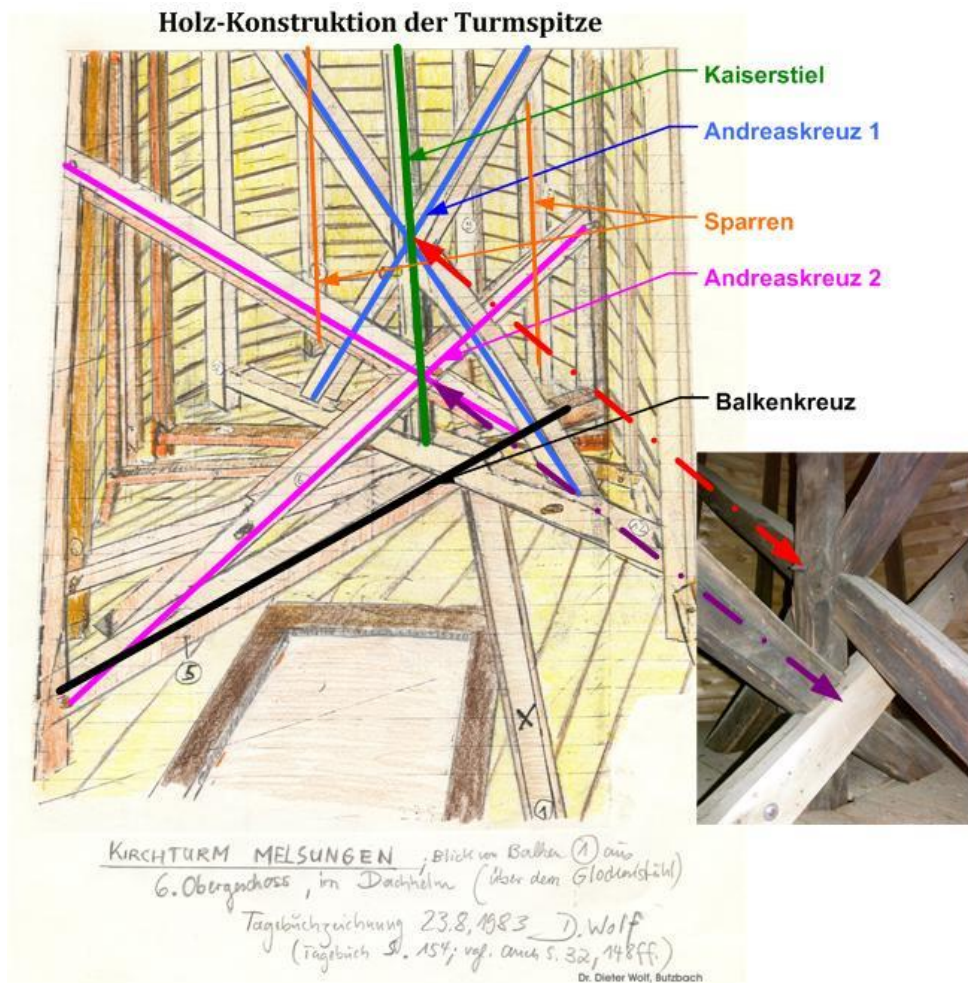 Holz-Konstruktion der Turmspitze
Kaiserstiel
Andreaskreuz 1
Sparren
Andreaskreuz 2
Balkenkreuz
5
X
1
KIRCHTURM MELSUNGEN, Blick von Balken 1 aus
6. Obergeschoss, im Dachhelm (über dem Glockenstuhl)
Tagebuchzeichnung 23.8.1983 D. Wolf
(Tagebuch S. 154; vgl. auch S. 32, 148ff.)
Dr. Dieter Wolf, Butzbach